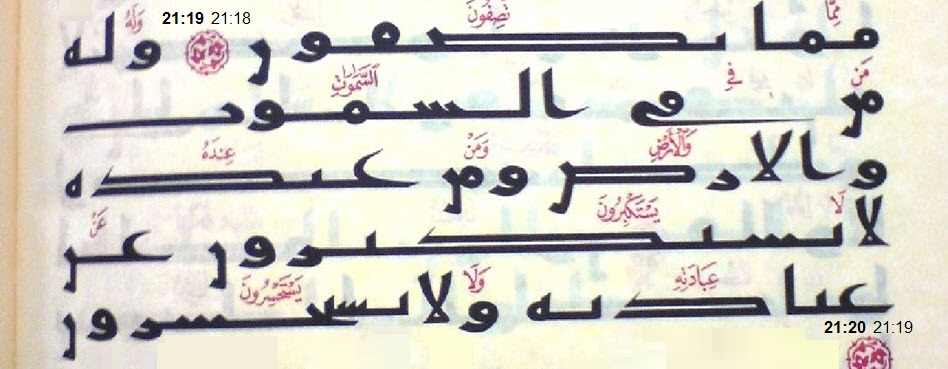 مِمَّا تَصِفُونَ وَلَهُ 21:19 21:18
مما تصفون وله
مَن فِي السَّمٰوٰتِ
من في السموت
وَالْأَرْضِ وَمَنْ عِندَهُ
والارض ومن عنده
لَا يَسْتَكْبِرُونَ عَنْ
لا يستكبرون عن
عِبَادَتِهِ وَلَا يَسْتَحْسِرُونَ
عبادته ولا يستحسرون
21:20 21:19